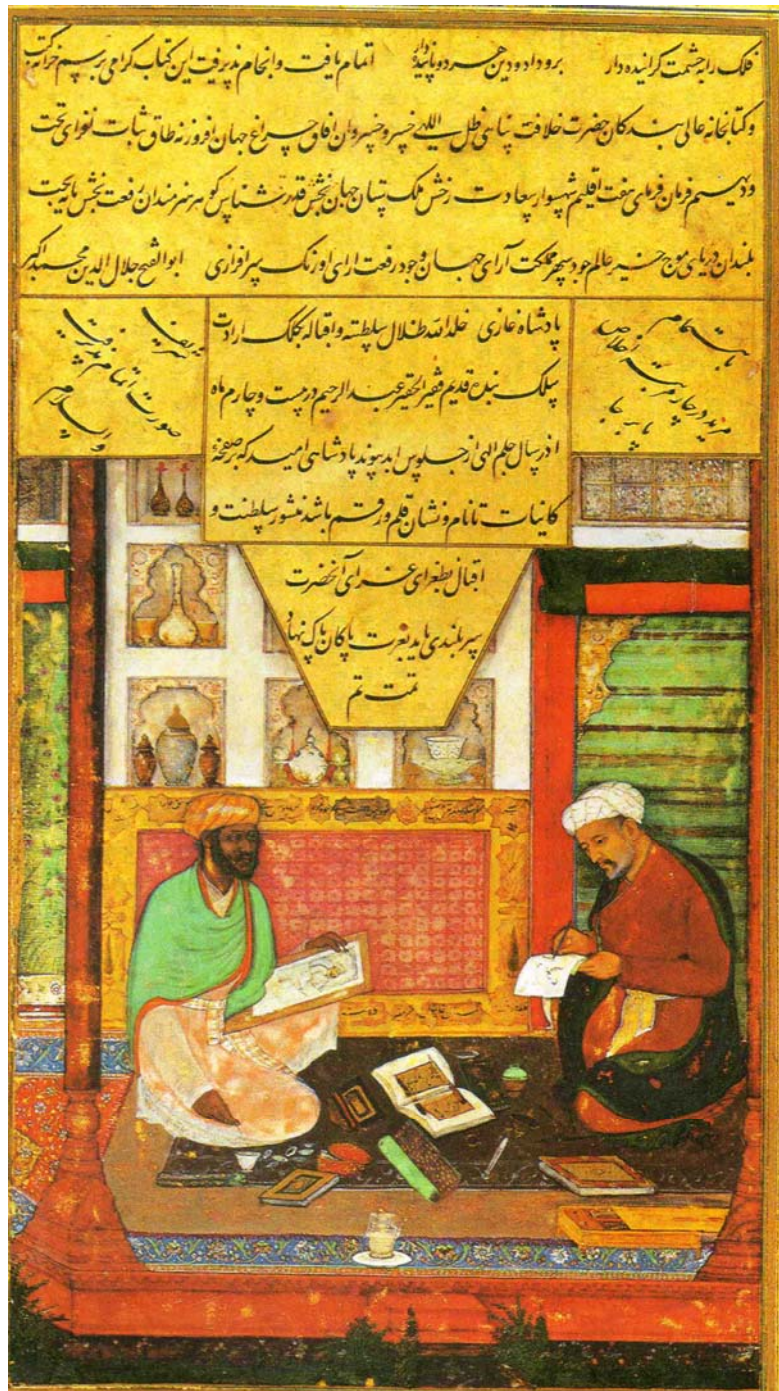 فلک را به حشمت گراینده دار برو داد و دین هر دو پاینده دار اتمام یافت و انجام پذیرفت این کتاب گرامی برسم خزانه کتب
و کتابخانه عالی بندکان حضرت خلافت پناهی ظل اللهی خسرو خسروان آفاق چراغ جهان افروز نه طاق ثبات تخت
و دیهیم فرمان فرمای هفت اقلیم شهسوار سعادت رخش ملک ستان جهان بخش قدر شناس هنرمندان رفعت بخش پایه تخت
بلندان دریای موج خیز عالم جود سپهر مملکت آرای جهان وجود رفعت ارای اورنک سرافرازی ابوالفتح جلال الدین محمد اکبر
پادشاه غازی خلد الله ظلال سلطنته و اقباله بکلک ارادت
سلک بنده قدیم فقیر الحقیر عبد الرحیم در بیست و چارم ماه
اذر سال چلم الهی از جلوس ابد پیوند پادشاهی امید که بر صفحه
کاینات تا نام و نشان قلم و رقم باشد منشور سلطنت و
اقبال بطغرای غرای آنحضرت
سربلندی یابد بعزت پاکان پاک نهاد
تمت تم
صورت اتمام پذیرفت
والسلام